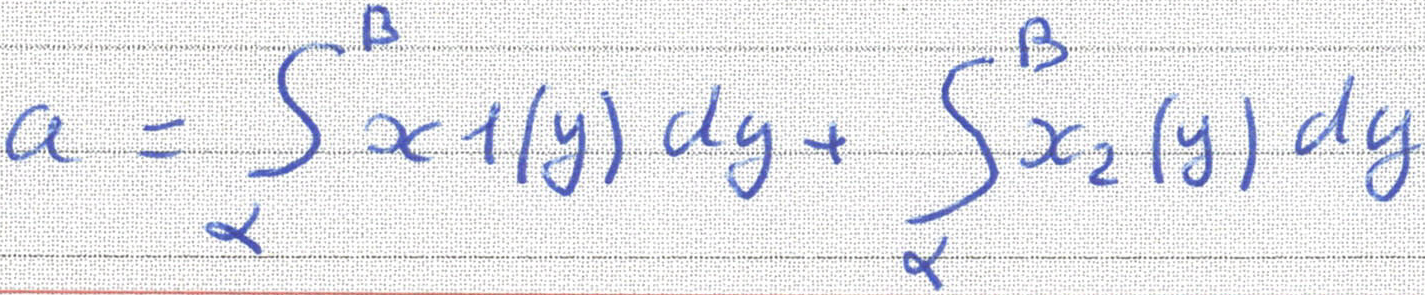 a = ∫_α^β x1(y) dy + ∫_α^β x₂(y) dy